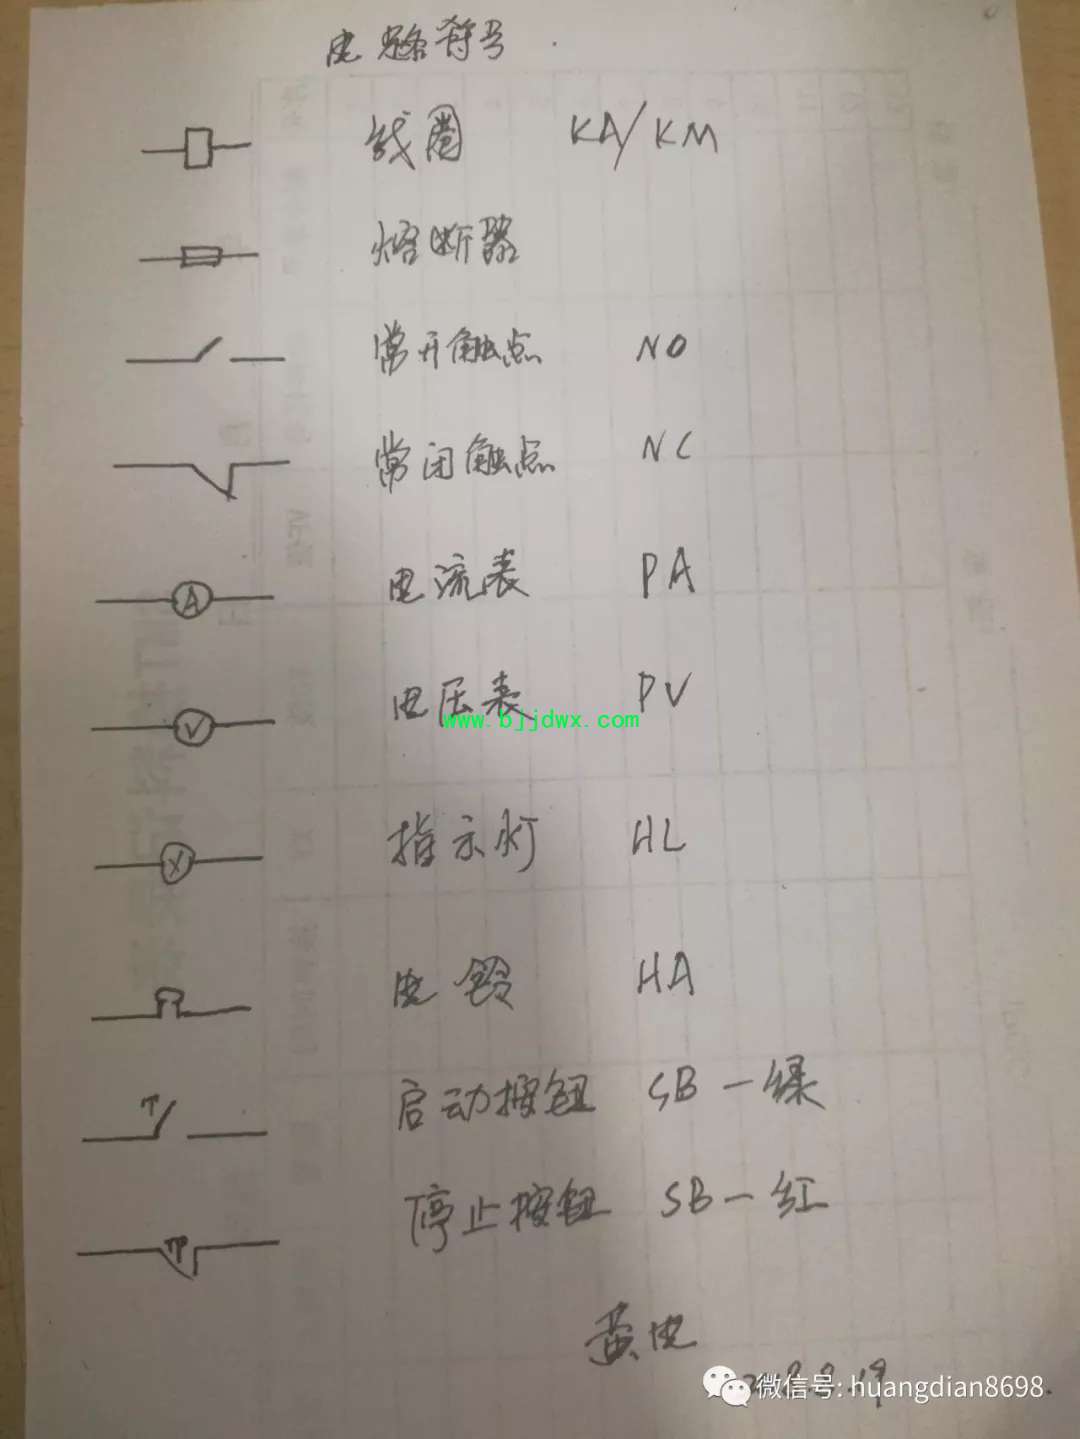 电路符号
线圈 KA/KM
熔断器
常开触点 NO
常闭触点 NC
A 电流表 PA
V 电压表 PV
www.bjjdwx.com
X 指示灯 HL
电铃 HA
启动按钮 SB一绿
停止按钮 SB一红
黄电
微信号: huangdian8698